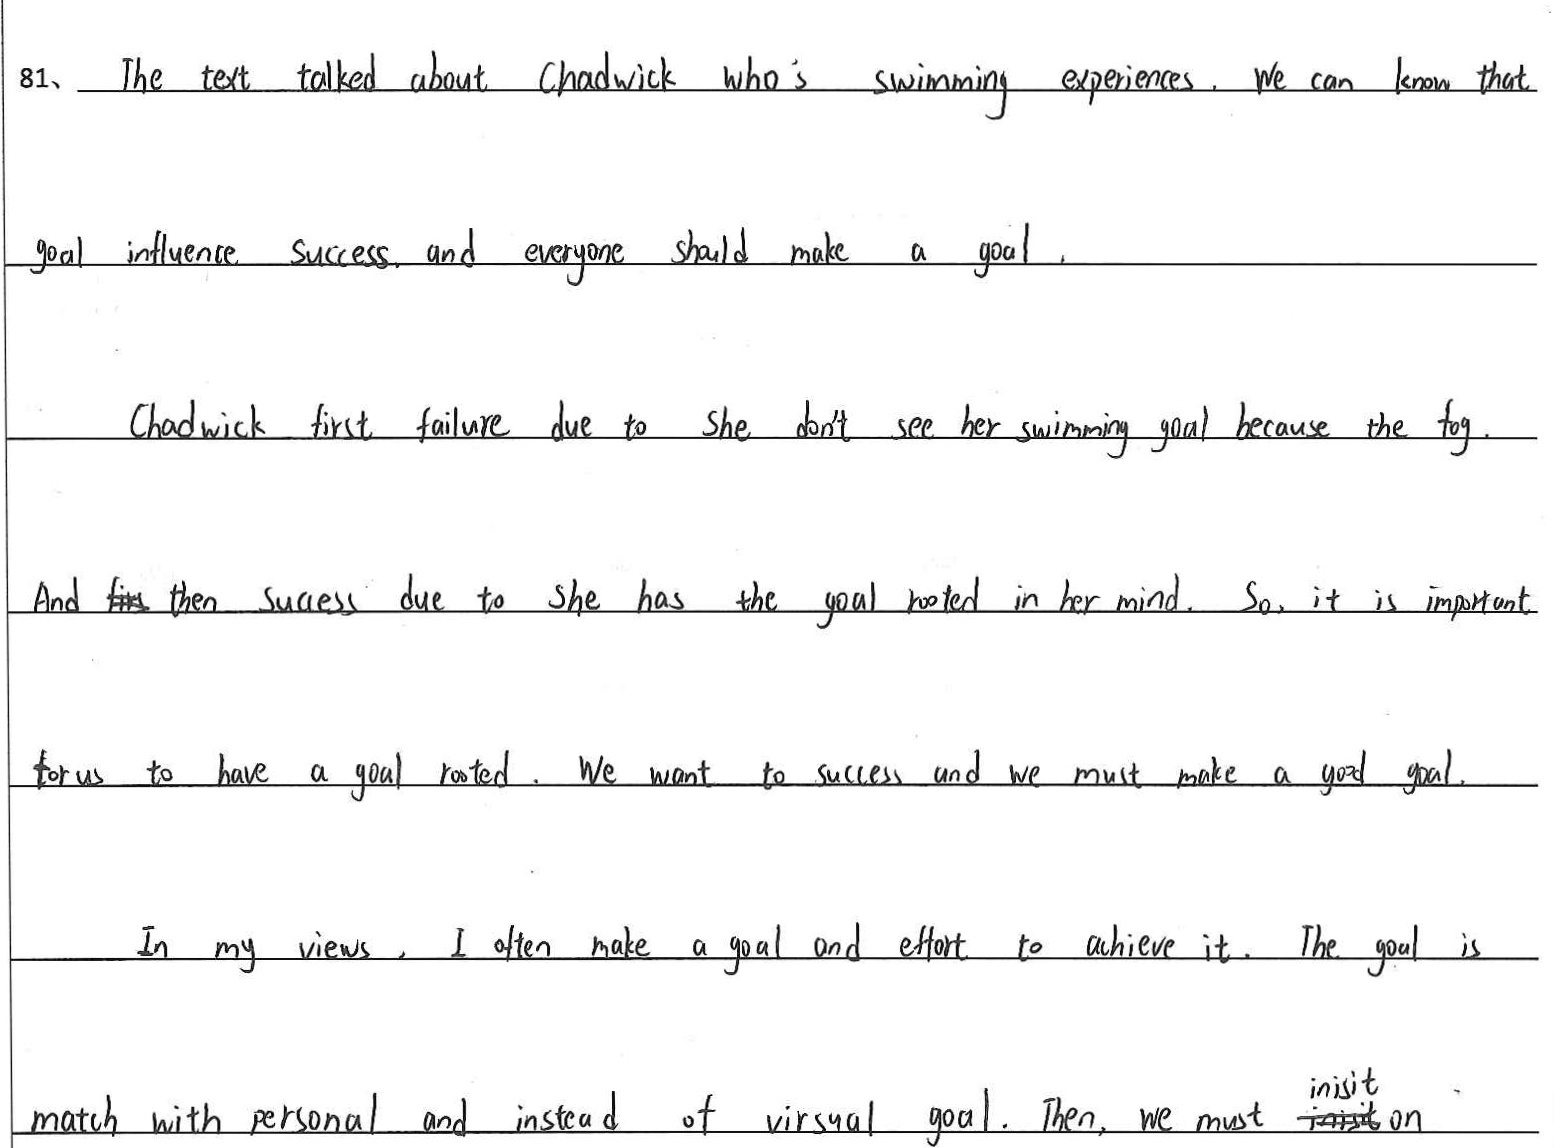 81、 The text talked about Chadwick who's swimming experiences. We can know that
goal influence success and everyone should make a goal.
Chadwick first failure due to she don't see her swimming goal because the fog.
And then success due to she has the goal rooted in her mind. So, it is important
for us to have a goal rooted. We want to success and we must make a good goal.
In my views, I often make a goal and effort to achieve it. The goal is
match with personal and instead of virsual goal. Then, we must inisit on